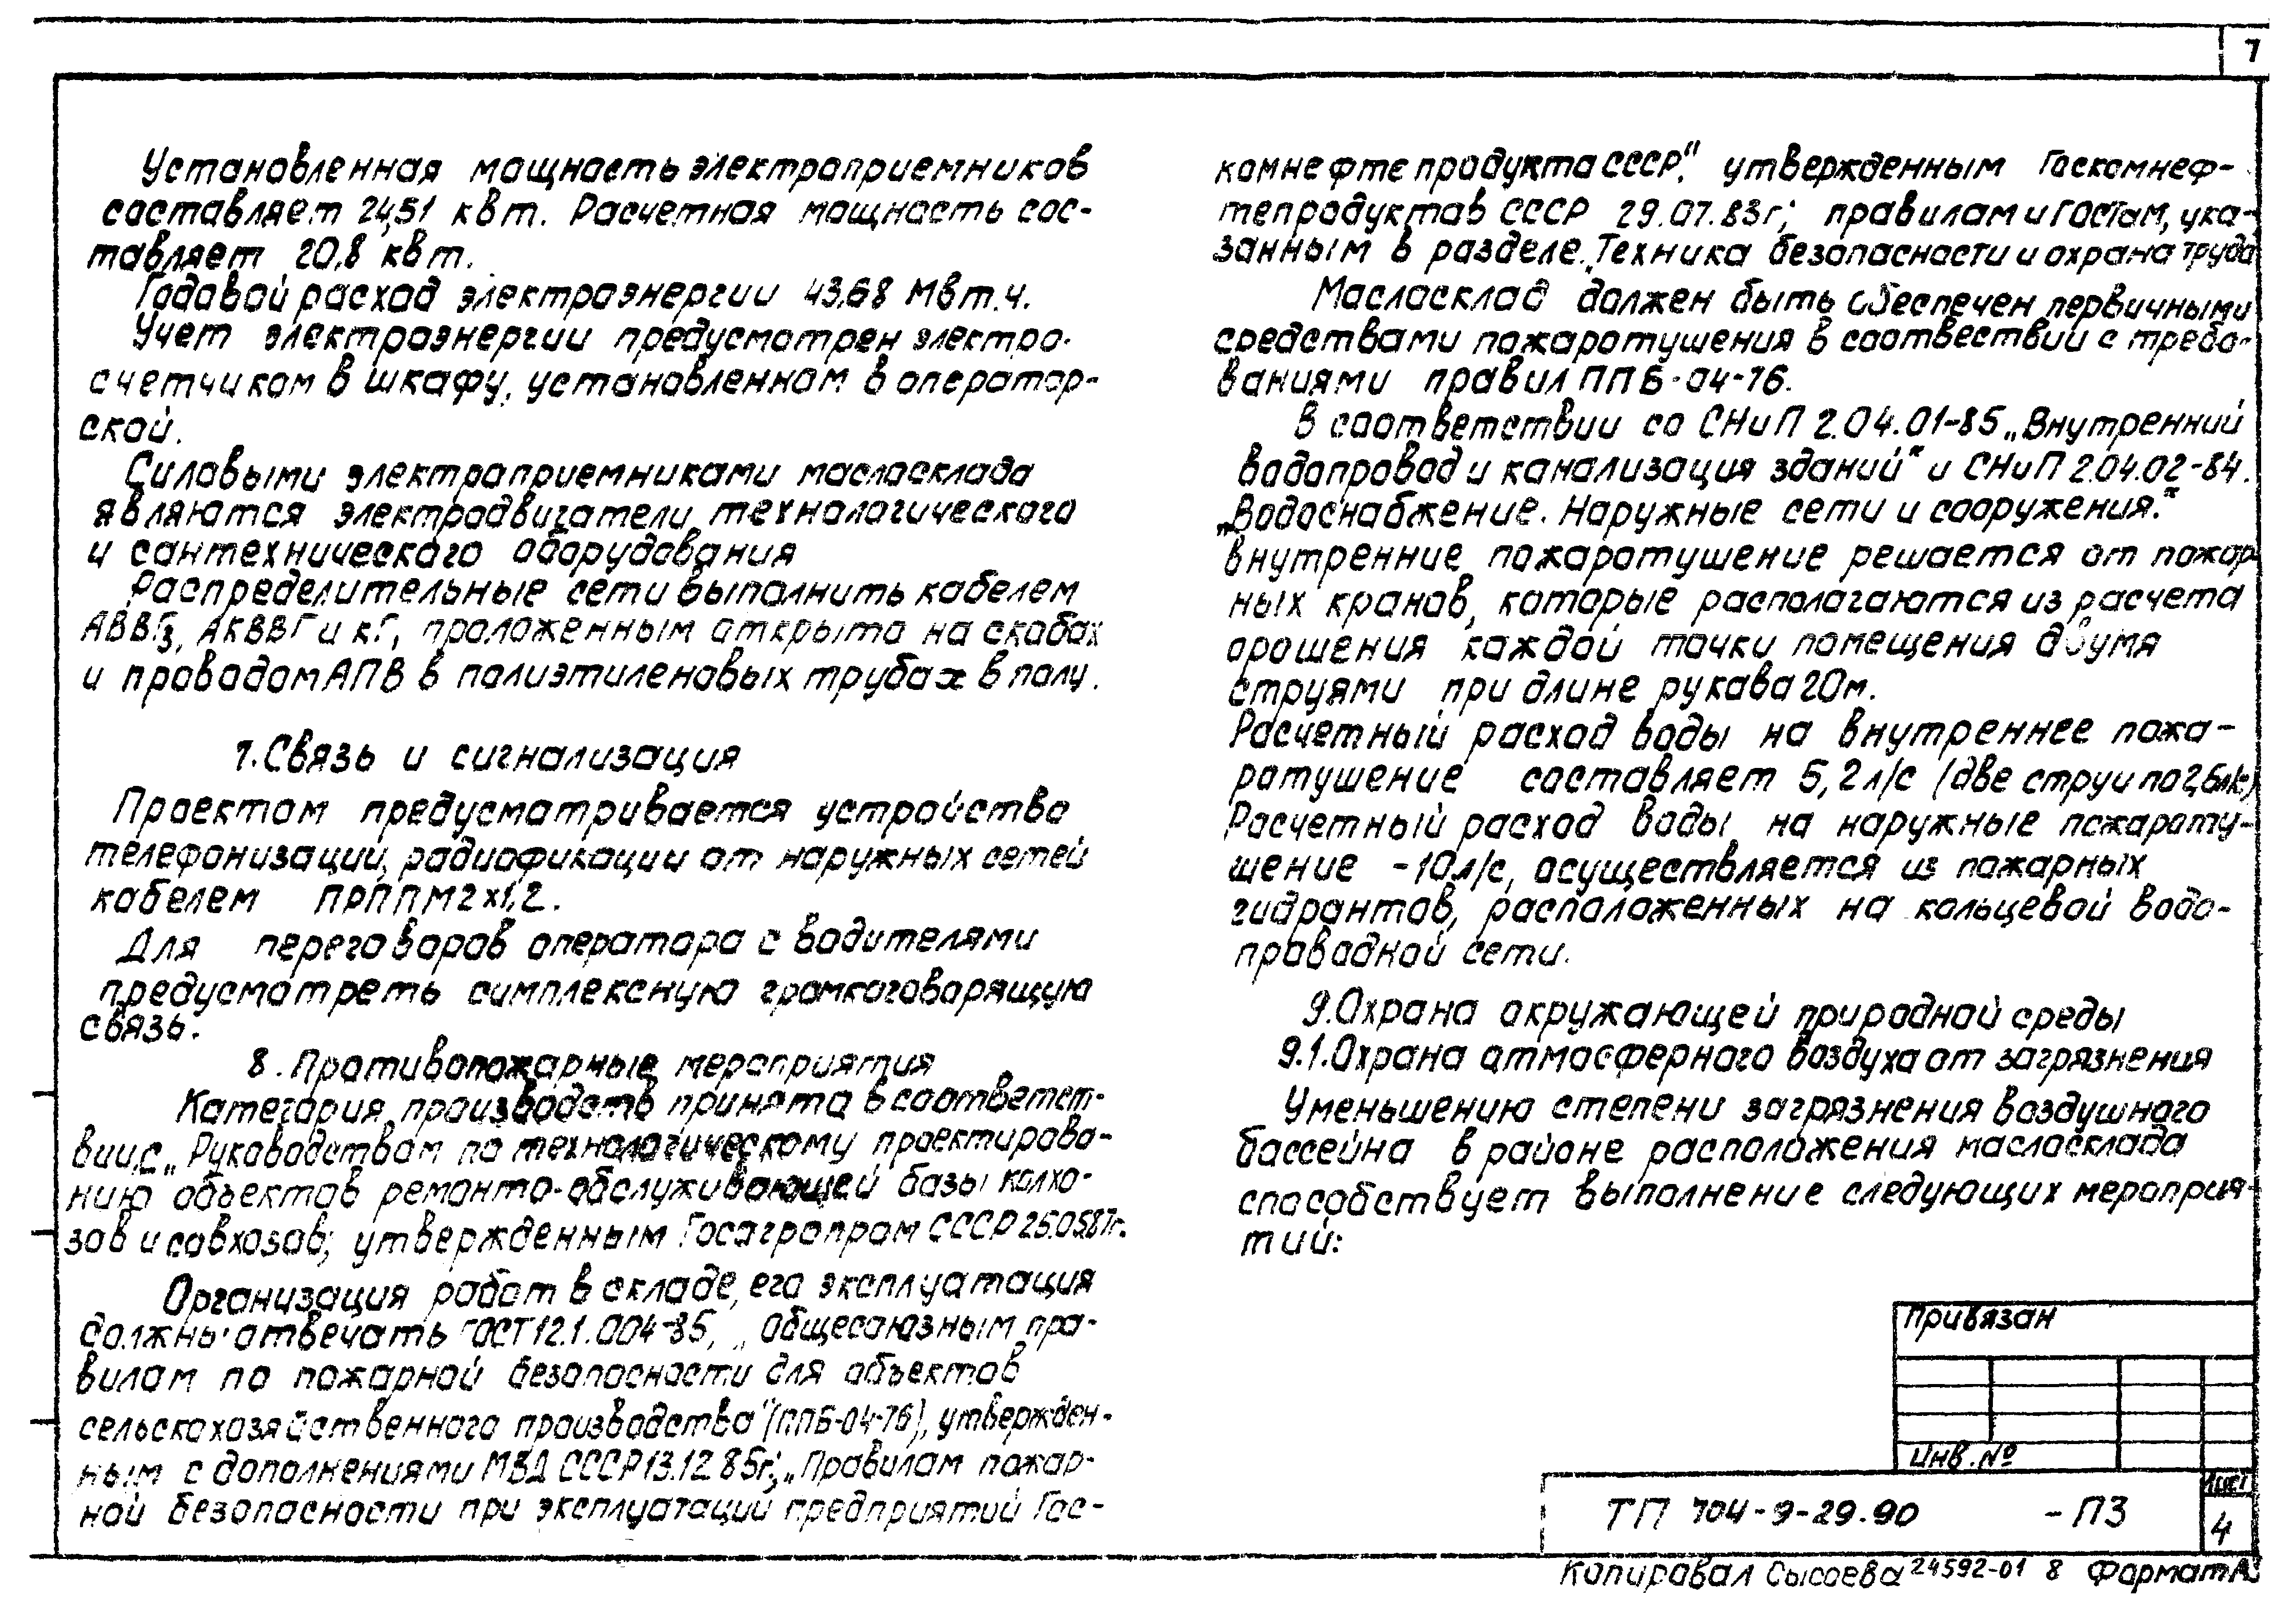 7
Установленная мощность электроприемников
составляет 24,51 квт. Расчетная мощность сос-
тавляет 20,8 квт.
Годовой расход электроэнергии 43,68 Мвт.ч.
Учет электроэнергии предусмотрен электро-
счетчиком в шкафу, установленном в оператор-
ской.
Силовыми электроприемниками маслосклада
являются электродвигатели технологического
и сантехнического оборудования
Распределительные сети выполнить кабелем
АВВГз, АКВВГ и кГ, проложенным открыто на скобах
и проводом АПВ в полиэтиленовых трубах в полу.
7. Связь и сигнализация
Проектом предусматривается устройство
телефонизации, радиофикации от наружных сетей
кабелем ПРППМ 2х1,2.
Для переговоров оператора с водителями
предусмотреть симплексную громкоговорящую
связь.
8. Противопожарные мероприятия
Категория производств принята в соответст-
вии с „Руководством по технологическому проектирова-
нию объектов ремонтно-обслуживающей базы колхо-
зов и совхозов", утвержденным Госагропром СССР 25.05.87г.
Организация работ в складе, его эксплуатация
должны отвечать ГОСТ 12.1.004-85, „Общесоюзным пра-
вилам по пожарной безопасности для объектов
сельскохозяйственного производства" (ППБ-04-76), утвержден-
ным с дополнениями МВД СССР 13.12.85г; „Правилам пожар-
ной безопасности при эксплуатации предприятий Гос-
комнефтепродукта СССР", утвержденным Госкомнеф-
тепродуктов СССР 29.07.83г; правилам и ГОСТам, ука-
занным в разделе „Техника безопасности и охрана труда
Маслосклад должен быть обеспечен первичными
средствами пожаротушения в соотвествии с требо-
ваниями правил ППБ-04-76.
В соответствии со СНиП 2.04.01-85 „Внутренний
водопровод и канализация зданий" и СНиП 2.04.02-84.
„Водоснабжение. Наружные сети и сооружения."
внутренние пожаротушение решается от пожар-
ных кранов, которые располагаются из расчета
орошения каждой точки помещения двумя
струями при длине рукава 20м.
Расчетный расход воды на внутреннее пожа-
ротушение составляет 5,2 л/с (две струи по 2,6л/с)
Расчетный расход воды на наружные пожароту-
шение - 10л/с, осуществляется из пожарных
гидрантов, расположенных на кольцевой водо-
проводной сети.
9. Охрана окружающей природной среды
9.1. Охрана атмосферного воздуха от загрязнения
Уменьшению степени загрязнения воздушного
бассейна в районе расположения маслосклада
способствует выполнение следующих мероприя-
тий:
Привязан
Инв. №
ТП 704-9-29.90 -ПЗ
Лист
4
Копировал Сысоева 24592-01 8 Формат А3